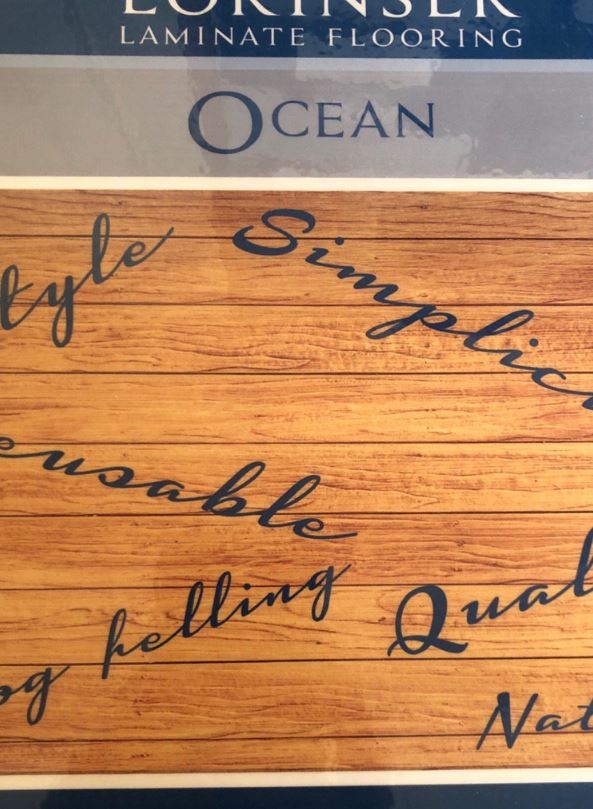 LORINSER
LAMINATE FLOORING
OCEAN
tyle
Simplic
eusable
helling
Qual
og
Nat